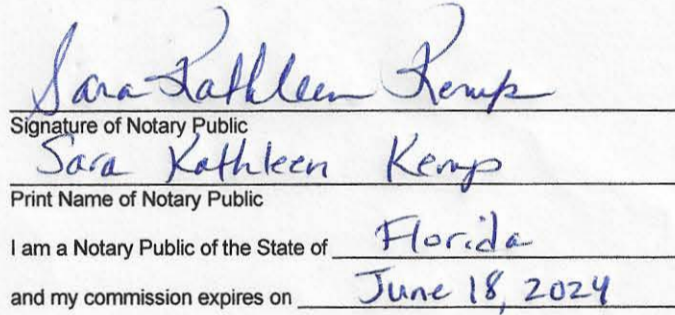 Sara Kathleen Kemp
Signature of Notary Public
Sara Kathleen Kemp
Print Name of Notary Public
I am a Notary Public of the State of Florida
and my commission expires on June 18, 2024